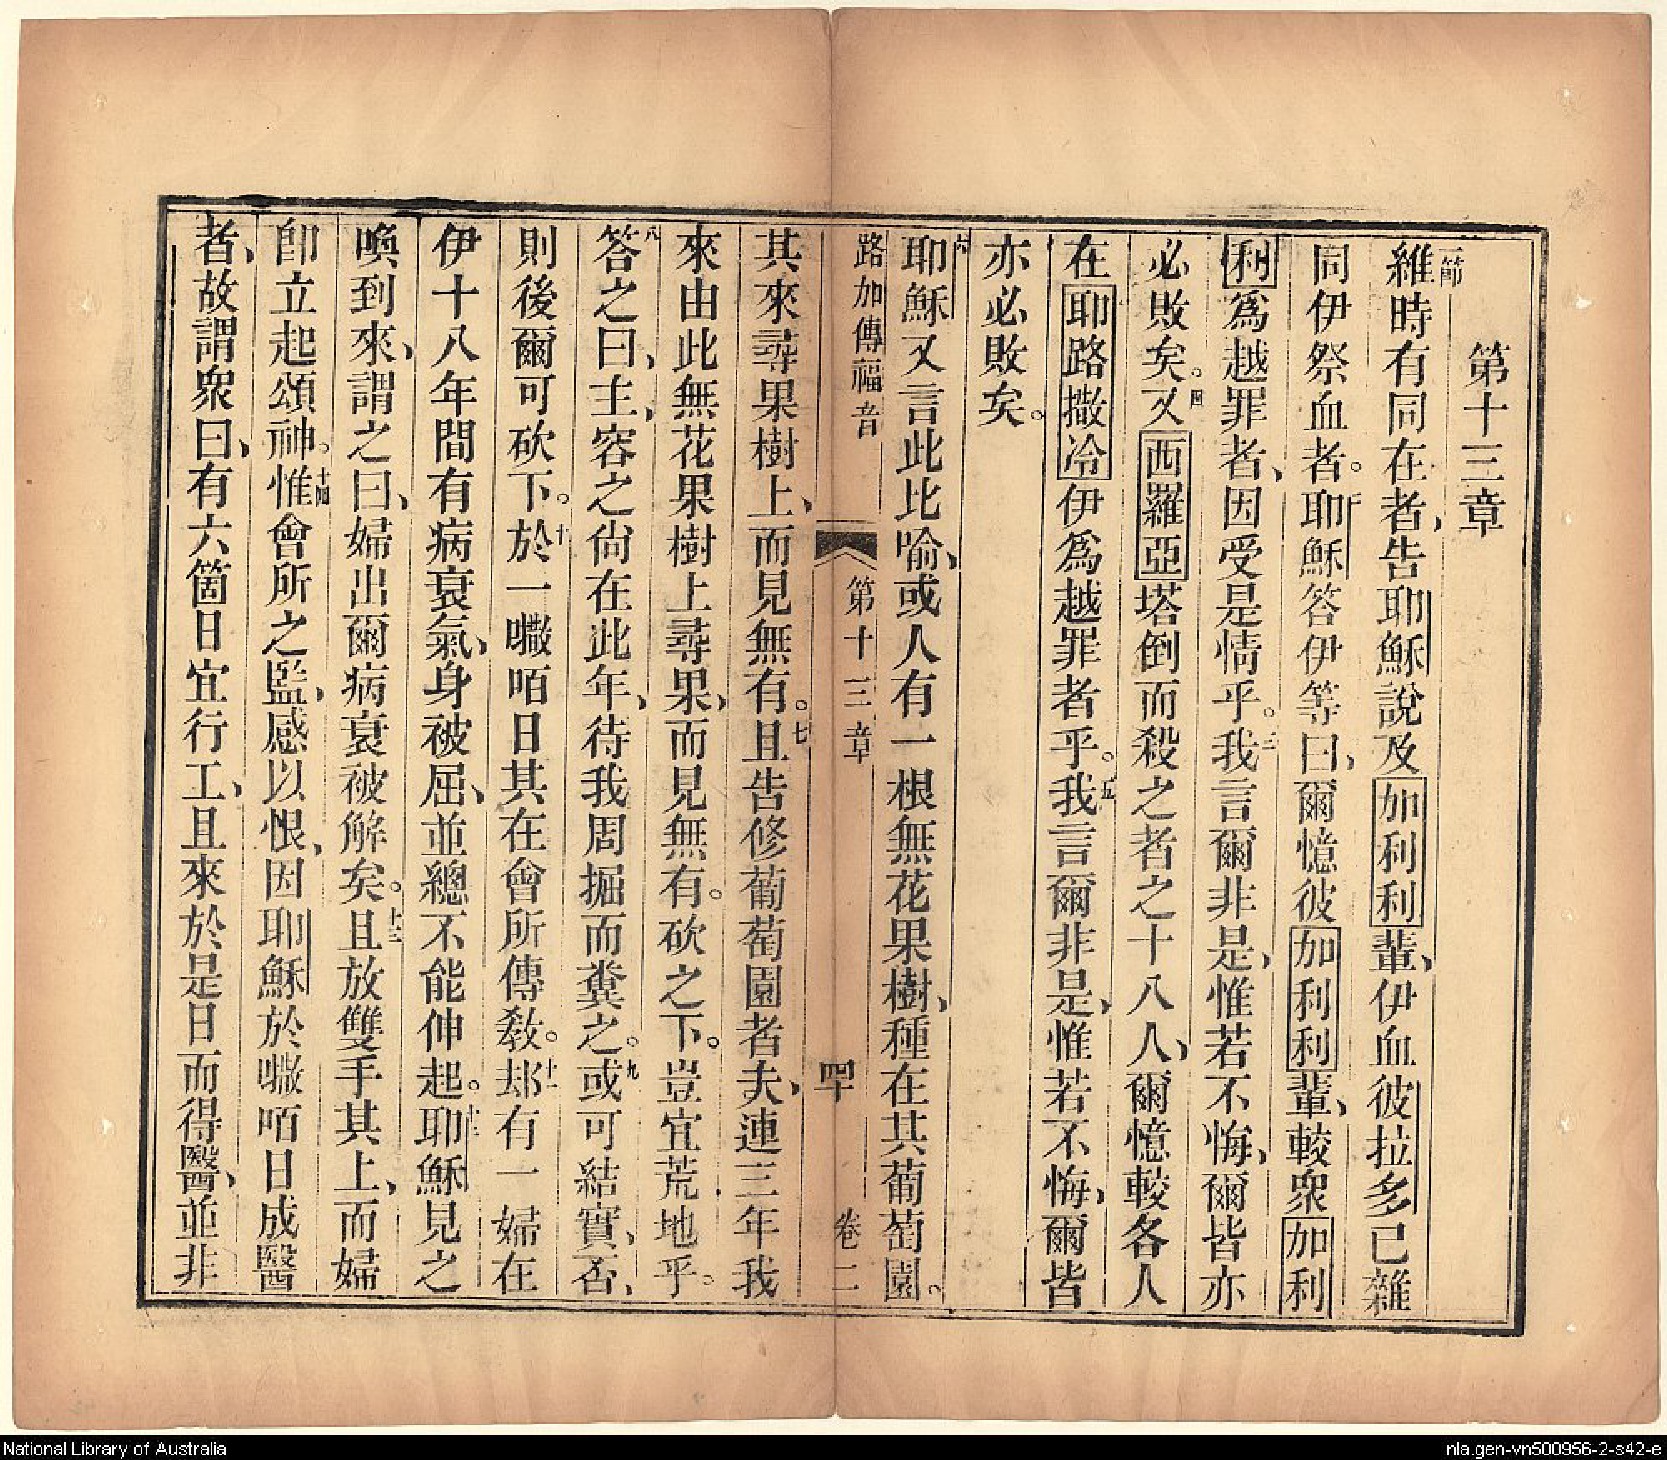 第十三章
一節
維時有同在者、告耶穌說及加利利輩、伊血彼拉多已雜
同伊祭血者。二耶穌答伊等曰、爾憶彼加利利輩、較眾加利
利爲越罪者、因受是情乎。三我言爾非是、惟若不悔、爾皆亦
必敗矣。四又西羅亞塔倒而殺之者之十八人、爾憶較各人
在耶路撒冷伊爲越罪者乎。五我言爾非是、惟若不悔、爾皆
亦必敗矣。
六耶穌又言此比喻、或人有一根無花果樹、種在其葡萄園。
路加傳福音 第十三章 四十 卷二
其來尋果樹上、而見無有。七且告修葡萄園者、夫連三年我
來由此無花果樹上尋果、而見無有。砍之下。豈宜荒地乎。
八答之曰、主、容之尙在此年、待我周掘而糞之。九或可結實、否、
則後爾可砍下。十於一㘔咟日其在會所傳教。十一却有一婦在
伊十八年間有病衰氣、身被屈、並總不能伸起。十二耶穌見之
喚到來、謂之曰、婦出爾病衰被解矣。十三且放雙手其上、而婦
卽立起頌神。十四惟會所之監、感以恨、因耶穌於㘔咟日成醫
者、故謂眾曰、有六箇日宜行工、且來於是日而得醫、並非
National Library of Australia
nla.gen-vn500956-2-s42-e